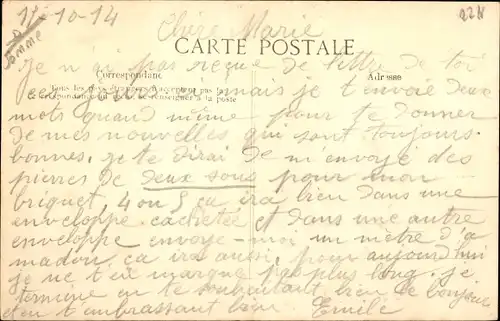 17-10-14
Somme
22X
Chère Marie
CARTE POSTALE
Correspondance
Adresse
je n'ai pas reçue de lettre de toi
mais je t'envoie deux
mots quand même pour te donner
de mes nouvelles qui sont toujours
bonnes. je te dirai de m'envoyé des
pierres de deux sous pour mon
briquet, 4 ou 5 ça ira bien dans une
enveloppe cachetée et dans une autre
enveloppe envoye-moi un mètre d'a
madou, ça ira aussi, pour aujourd'hui
je ne t'en marque pas plus long. je
termine en te souhaitant bien le bonjour
en t'embrassant bien Emile